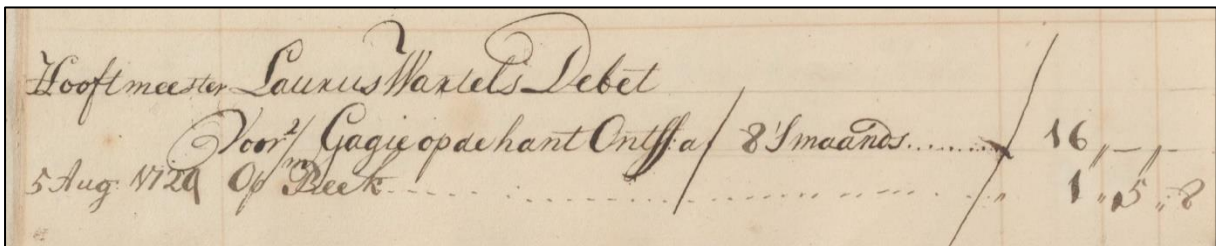 Hooftmeester Laurus Wartels Debet
Voor 2/m Gagie op de hant Ontff: a/ 8 'S maands........ 16 ,, — ,, —
5 Aug: 1729 Op Reek .................... ,, 1 ,, 5 ,, 8